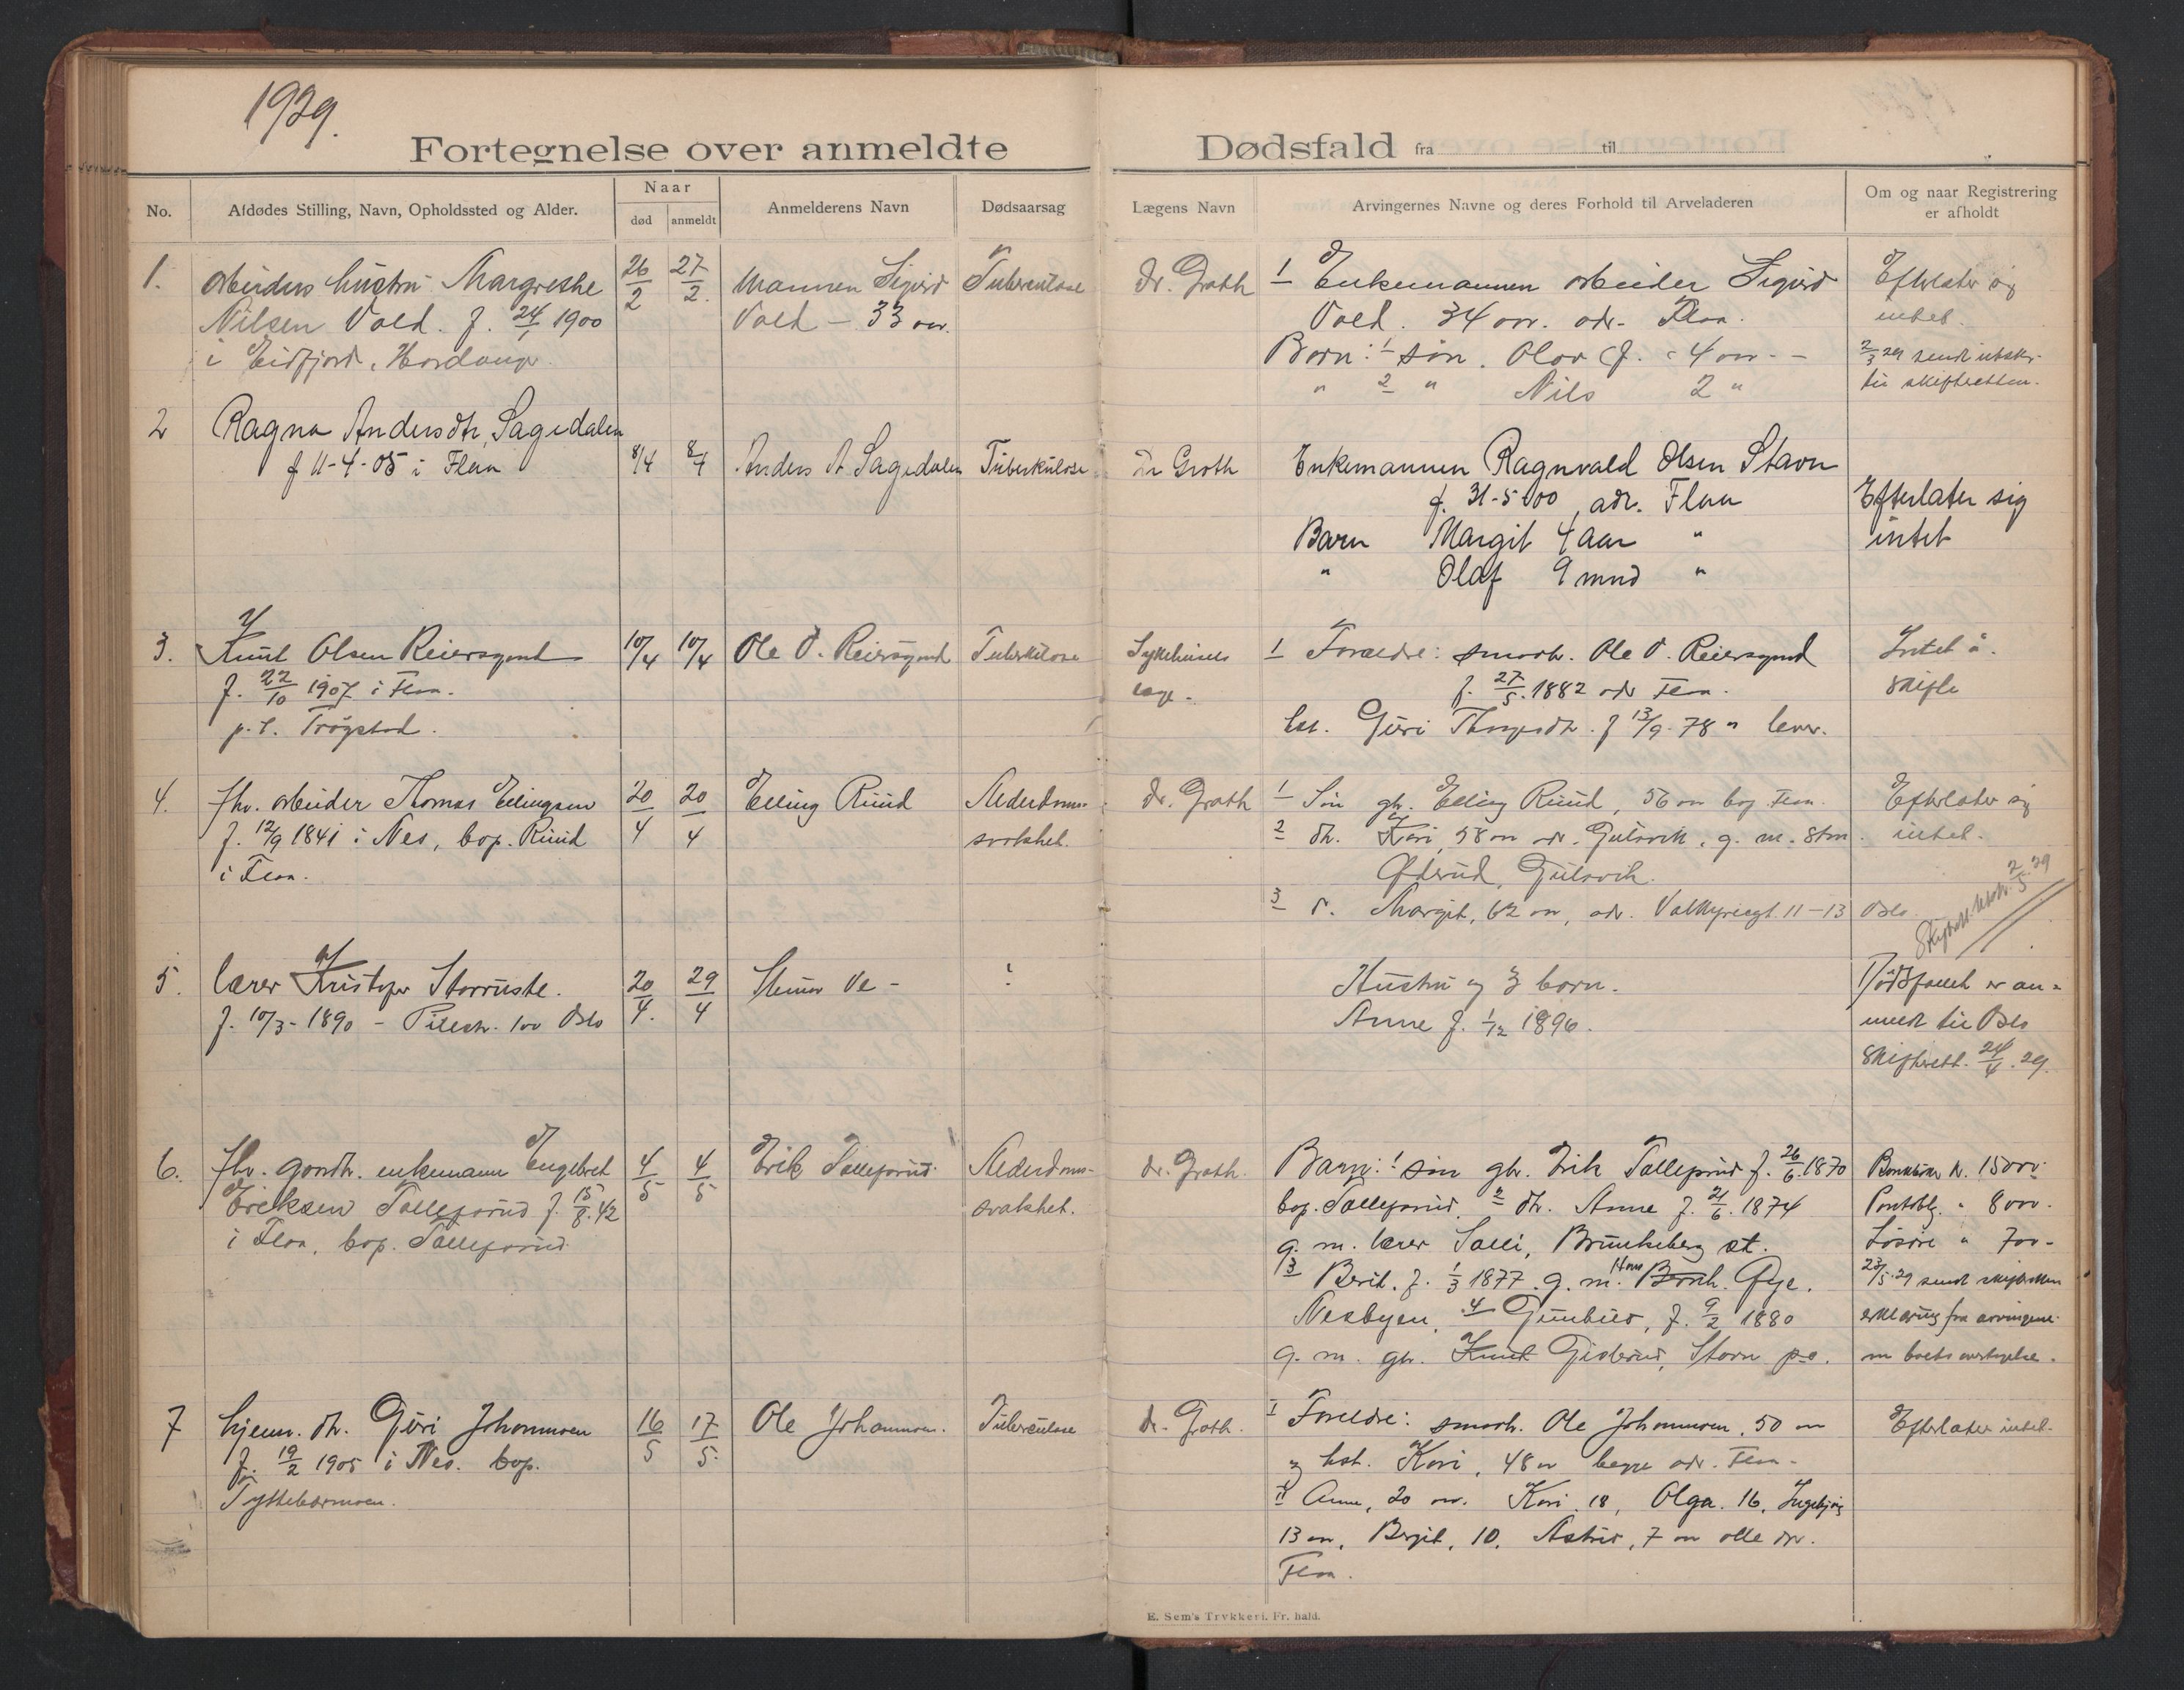 1929.
Fortegnelse over anmeldte Dødsfald fra til
No.
Afdødes Stilling, Navn, Opholdssted og Alder.
Naar
død
anmeldt
Anmelderens Navn
Dødsaarsag
Lægens Navn
Arvingernes Navne og deres Forhold til Arveladeren
Om og naar Registrering
er afholdt
1.
arbeiders hustru Margrethe
Nilsen Vold. f. 24/1 1900
i Eidfjord, Hardanger
26/2
27/2.
Mannen Sigurd
Vold – 33 aar.
Tuberculose
dr. Groth
1 Enkemannen arbeider Sigurd
Vold. 34 aar. adr. Flaa.
Barn: 1 søn. Olav f. 4 aar - -
" 2 " Nils 2 "
Efterlater sig
intet.
2/3 29 sendt utskr.
til skifteretten.
2
Ragna Andersdtr. Sagedalen
f 11-4-05 i Flaa
8/4
8/4
Anders A Sagedalen
Tuberkulose
Dr Groth
Enkemannen Ragnvald Olsen Stavn
f. 31-5-00, adr. Flaa
Barn Margit 4 aar "
" Olaf 9 mnd "
Efterlater sig
intet
3.
Knut Olsen Reiersgord
f. 22/10 1907 i Flaa.
p.t. Trøgstad.
10/4
10/4
Ole O. Reiersgord
Tuberkulose
Sykehusets
læge.
1 Foreldre: smaabr. Ole O. Reiersgord
f. 27/5. 1882 adr Flaa.
hst. Guri f 13/9. 78 " lever.
Intet å
skifte
4.
fhv. arbeider Thomas Ellingsen
f. 12/9 1841 i Nes, bop. Ruud
i Flaa.
20/4
20/4
Elling Ruud
Alderdoms-
svakhet.
dr. Groth
1 Søn gbr. Elling Ruud, 56 aar bop. Flaa.
2 dtr. Kari, 58 aar adr. Gulsvik, g. m.
Gulsvik.
3 d. Margit, 62 aar, adr. Valkyriegt. 11–13 Oslo.
Efterlater sig
intet.
2/5 29
5.
lærer Kristofer Storruste.
f. 10/3 - 1890 - Pilestr. 100 Oslo
20/4.
29/4
?
Hustru og 3 barn.
Anne f. 1/12 1896.
Dødsfallet er an=
meldt til Oslo
skifterett. 24/4. 29.
6.
fhv. gaardbr. enkemann Engebret
Eriksen f. 15/8. 42
i Flaa, bop.
4/5
4/5
Erik
Alderdoms-
svakhet.
dr. Groth.
Barn: 1 søn gbr. Erik f. 26/6. 1870
bop. 2 dtr. Anne f. 21/6. 1874
g. m. lærer Brunkeberg st.
3 Berit. f. 1/3 1877. g. m. Øye.
Nesbyen, 4 f. 9/2 1880
g. m. gbr. Knut Stavn p.o.
kr. 15000.
" 8000.
Løsøre " 700 -
23/5.29 sendt skifteretten
erklæring fra arvingene
7
hjem. dtr. Guri Johannoen
f. 19/2 1905 i Nes. bop.
Tyttebærmoen.
16/5
17/5.
Ole Johannoen.
Tuberculose
dr. Groth.
I Foreldre: smaabr. Ole Johannoen, 50 aar
og hst. Kari, 48 aar begge adr. Flaa.
II Anne, 20 aar. Kari 18, Olga. 16, Ingebjørg
13 aar, Bergit, 10, Astrid, 7 aar alle adr.
Flaa.
Efterlater intet.
E. Sem's Trykkeri. Fr. hald.